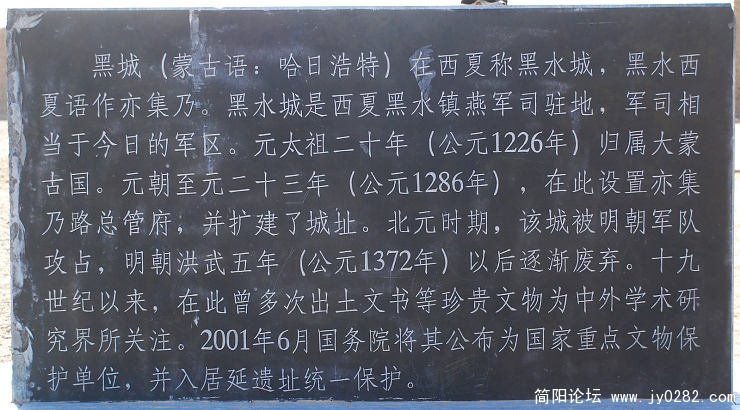 黑城（蒙古语：哈日浩特）在西夏称黑水城，黑水西
夏语作亦集乃。黑水城是西夏黑水镇燕军司驻地，军司相
当于今日的军区。元太祖二十年（公元1226年）归属大蒙
古国。元朝至元二十三年（公元1286年），在此设置亦集
乃路总管府，并扩建了城址。北元时期，该城被明朝军队
攻占，明朝洪武五年（公元1372年）以后逐渐废弃。十九
世纪以来，在此曾多次出土文书等珍贵文物为中外学术研
究界所关注。2001年6月国务院将其公布为国家重点文物保
护单位，并入居延遗址统一保护。
简阳论坛 www.jy0282.com